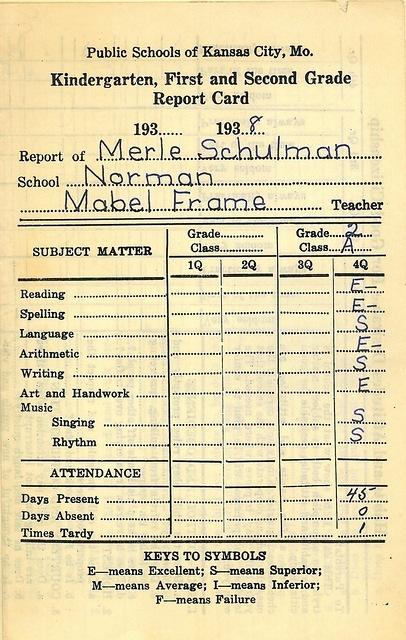 Public Schools of Kansas City, Mo.
Kindergarten, First and Second Grade
Report Card
193...... 1938..
Report of Merle Schulman
School Norman
Mabel Frame Teacher
SUBJECT MATTER Grade............ Class............ Grade 2 Class A
1Q 2Q 3Q 4Q
Reading E-
Spelling E-
Language S
Arithmetic E-
Writing S
Art and Handwork E
Music
Singing S
Rhythm S
ATTENDANCE
Days Present 45
Days Absent 0
Times Tardy 1
KEYS TO SYMBOLS
E—means Excellent; S—means Superior;
M—means Average; I—means Inferior;
F—means Failure